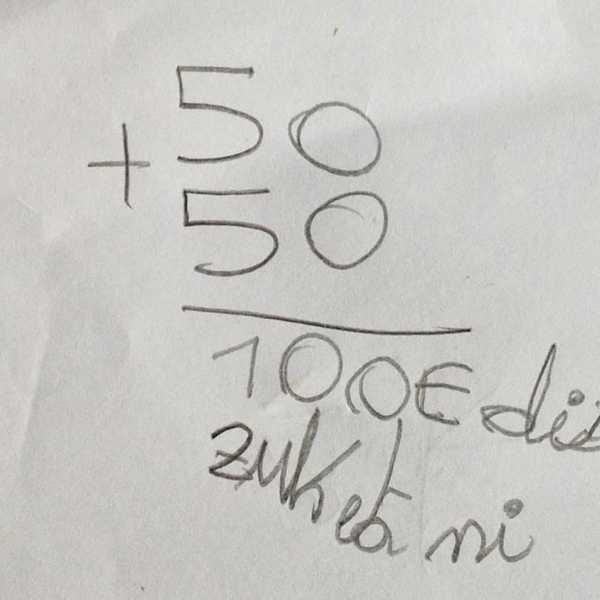 50
+ 50
100€
zuk eta ni